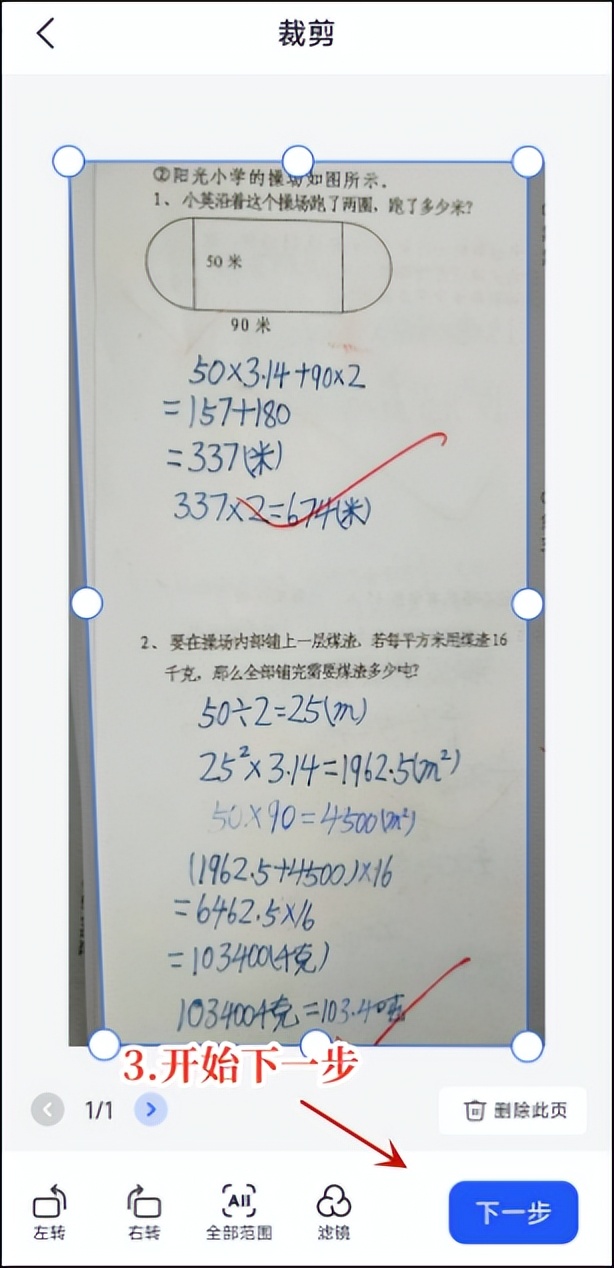 裁剪
②阳光小学的操场如图所示。
1、小英沿着这个操场跑了两圈，跑了多少米?
50米
90米
50×3.14+90×2
=157+180
=337(米)
337×2=674(米)
2、要在操场内部铺上一层煤渣，若每平方米用煤渣16
千克，那么全部铺完需要煤渣多少吨?
50÷2=25(m)
25²×3.14=1962.5(m²)
50×90=4500(m²)
(1962.5+4500)×16
=6462.5×16
=103400(千克)
103400千克=103.4吨
3.开始下一步
1/1
删除此页
左转
右转
All
全部范围
滤镜
下一步